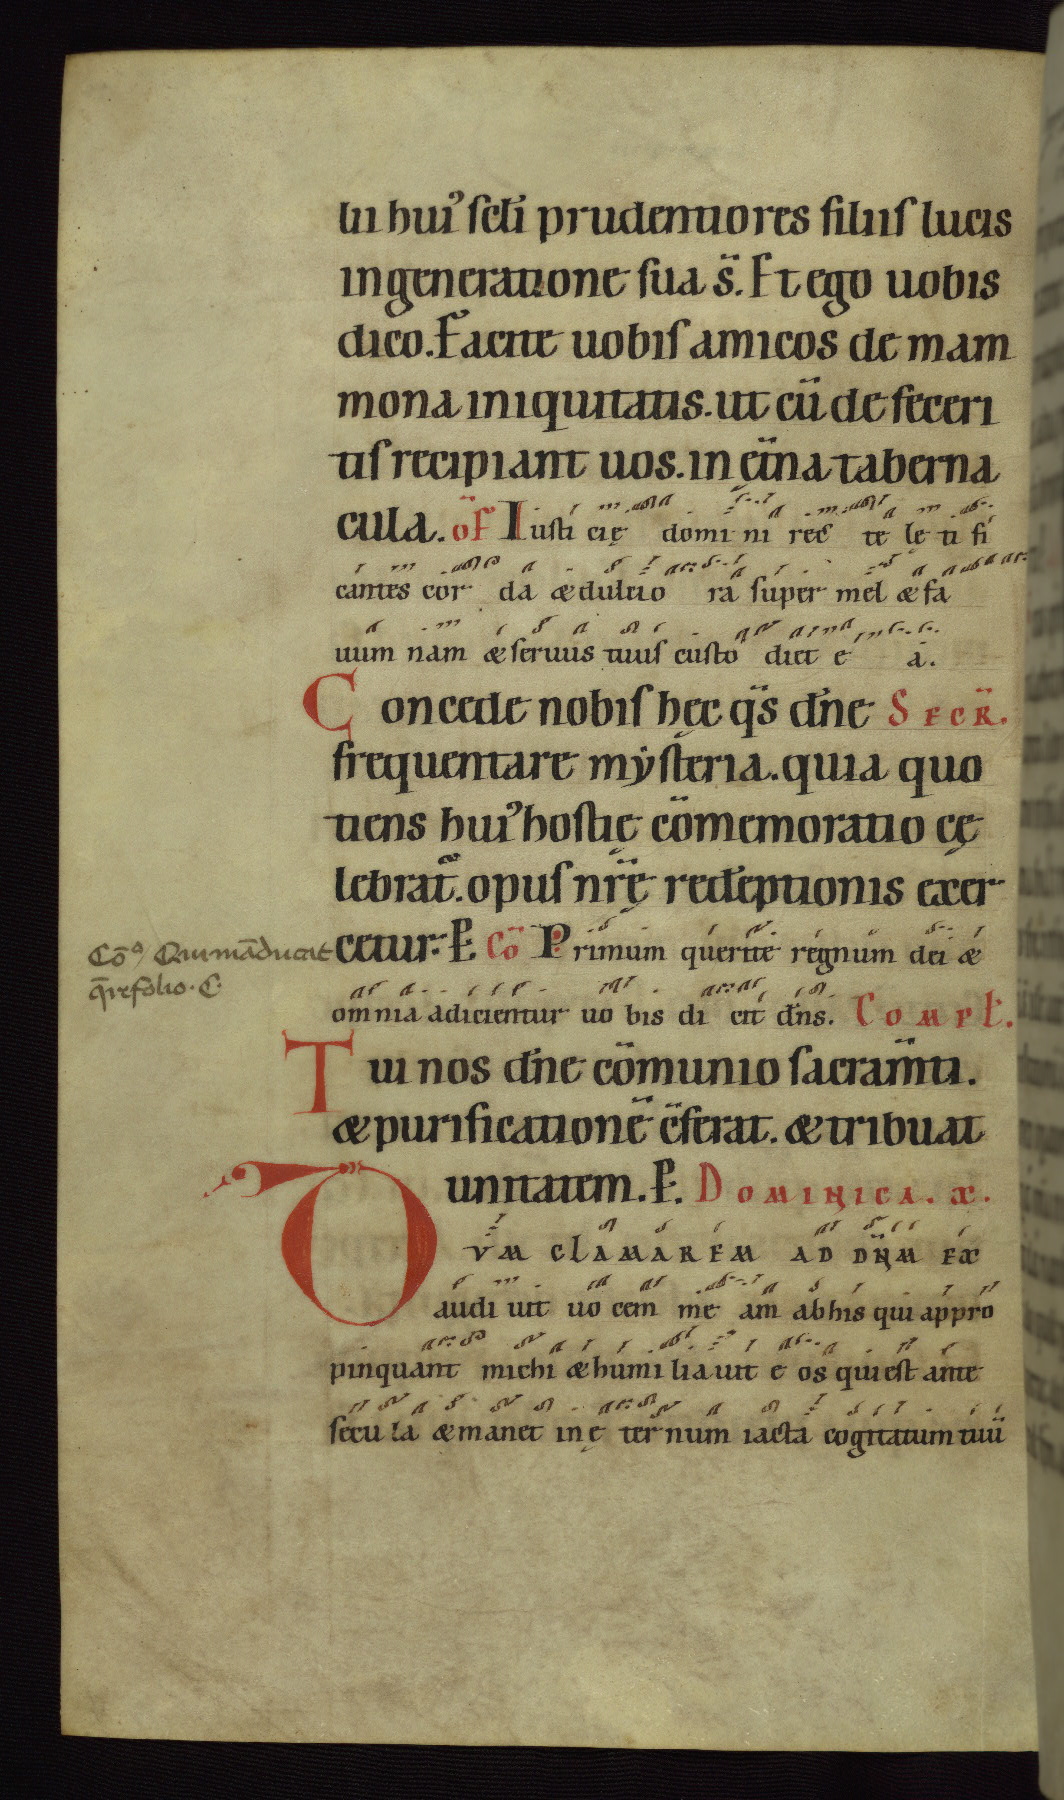 lii huiꝰ scłi prudentiores filiis lucis
in generatione sua s̄. Et ego uobis
dico. Facite uobis amicos de mam
mona iniquitatis. ut cū defeceri
tis recipiant uos. in ęt̄na taberna
cula. of̄ Iusticię domini rec te lętifi
cantes corda & dulcio ra super mel & fa
uum nam & seruus tuus custo diet e a.
Concede nobis hęc q̄s dn̄e Secr̄.
frequentare mẏsteria. quia quo
tiens huiꝰ hostię cōmemoratio cę
lebrat̄. opus nr̄ę redēptionis exer
cetur. P. Cō Primum querite regnum dei &
Cōꝰ Qui māducat
q̄re folio. C.
omnia adicientur uobis dicit dn̄s. Compł.
Tui nos dn̄e cōmunio sacram̄ti.
& purificationē c̄ferat. & tribuat
unitatem. P. Dominica. x.
Dum clamarem ad dn̄m ex
audiuit uocem meam ab his qui appro
pinquant michi & humiliauit eos qui est ante
secula & manet in ęternum iacta cogitatum tuū